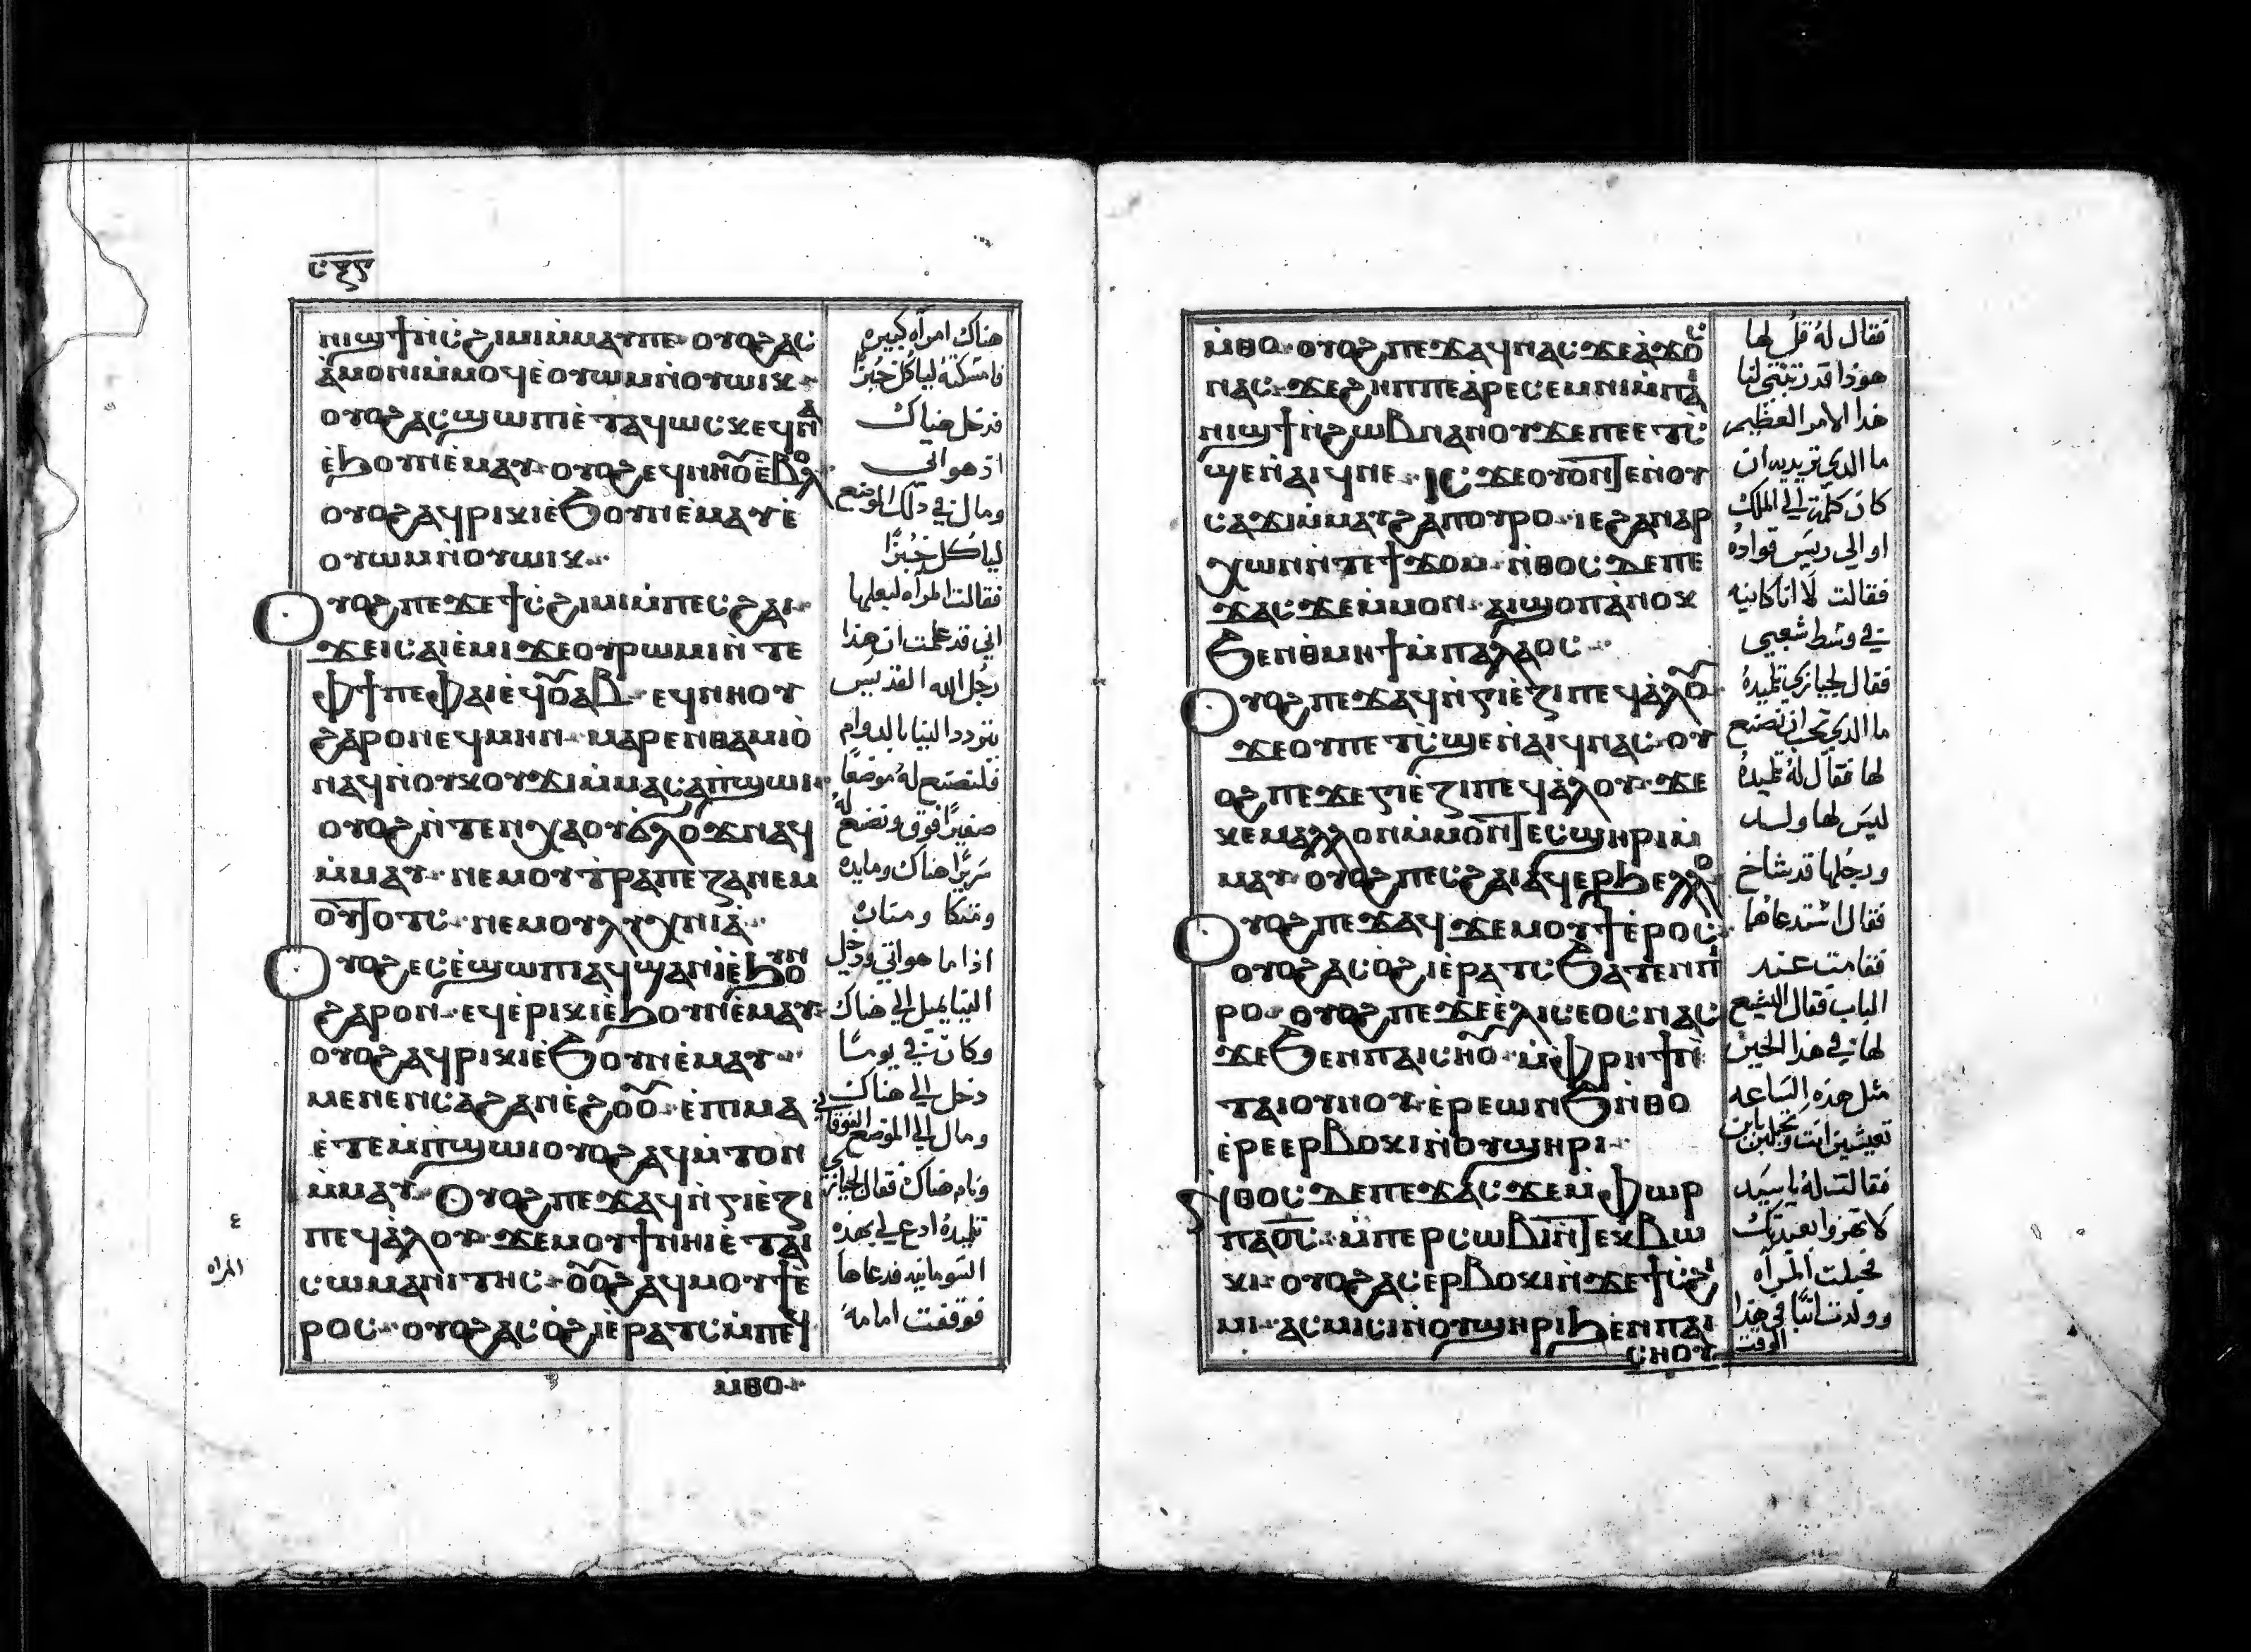 ⲥ︦ⲝ︦ⲋ︦
ⲛⲓϣϯⲛ̀ⲥ̀ϩⲓⲙⲓⲙ̀ⲙⲁⲩⲡⲉ· ⲟⲩⲟϩⲁⲥ
ⲁ̀ⲙⲟⲛⲓⲙ̀ⲙⲟϥⲉ̀ⲟⲩⲱⲙⲛ̀ⲟⲩⲱⲓⲕ·
ⲟⲩⲟϩⲁⲥϣⲱⲡⲓⲉ̀ⲧⲁϥⲱⲥⲕⲉϥⲛⲁ̀
ⲉ̀ϧⲟⲩⲛⲉ̀ⲙⲁⲩ· ⲟⲩⲟϩⲉϥⲛⲏⲟⲩⲉ̀ⲃⲟⲗ
ⲟⲩⲟϩⲁϥⲣⲓⲕⲓⲉ̀ϧⲟⲩⲛⲉ̀ⲙⲁⲩⲉ̀
ⲟⲩⲱⲙⲛ̀ⲟⲩⲱⲓⲕ··
Ⲟⲩⲟϩⲡⲉϫⲉϯⲥ̀ϩⲓⲙⲓⲙ̀ⲡⲉⲥϩⲁⲓ·
ϫⲉⲓⲥⲁⲓⲉ̀ⲙⲓϫⲉⲟⲩⲣⲱⲙⲓⲛ̀ⲧⲉ
ⲫϯⲡⲉⲫⲁⲓⲉ̀ϥⲟⲩⲁⲃ· ⲉϥⲛⲏⲟⲩ
ϩⲁⲣⲟⲛⲉϥⲙⲏⲛ· ⲙⲁⲣⲉⲛⲑⲁⲙⲓⲟ̀
ⲛⲁϥⲛ̀ⲟⲩⲕⲟⲩϫⲓⲙ̀ⲙⲁⲥⲁⲡ̀ϣⲱⲓ·
ⲟⲩⲟϩⲛ̀ⲧⲉⲛⲭⲁⲟⲩϭⲗⲟϫⲛⲁϥ
ⲙ̀ⲙⲁⲩ· ⲛⲉⲙⲟⲩⲧ̀ⲣⲁⲡⲉⲍⲁⲛⲉⲙ
ⲟⲩϯⲟⲧⲥ· ⲛⲉⲙⲟⲩⲗⲩⲭⲛⲓⲁ̀··
Ⲟⲩⲟϩⲉⲥⲉ̀ϣⲱⲡⲓⲁϥϣⲁⲛⲓ̀ⲉ̀ϧⲟⲩⲛ
ϩⲁⲣⲟⲛ· ⲉϥⲉ̀ⲣⲓⲕⲓⲉ̀ϧⲟⲩⲛⲉ̀ⲙⲁⲩ·
ⲟⲩⲟϩⲁϥⲣⲓⲕⲓⲉ̀ϧⲟⲩⲛⲉ̀ⲙⲁⲩ··
ⲙⲉⲛⲉⲛⲥⲁϩⲁⲛⲉ̀ϩⲟⲟⲩ· ⲉ̀ⲡⲓⲙⲁ
ⲉ̀ⲧⲉⲙ̀ⲡ̀ϣⲱⲓⲟⲩⲟϩⲁϥⲙ̀ⲧⲟⲛ
ⲙ̀ⲙⲁⲩ· Ⲟⲩⲟϩⲡⲉϫⲁϥⲛ̀ⲅⲓⲉ̀ⲍⲓ
ⲡⲉϥⲁ̀ⲗⲟⲩ· ϫⲉⲙⲟⲩϯⲛⲏⲓⲉ̀ⲧⲁⲓ
ⲥⲱⲙⲁⲛⲓⲧⲏⲥ· ⲟⲩⲟϩⲁϥⲙⲟⲩϯⲉ̀
ⲣⲟⲥ· ⲟⲩⲟϩⲁⲥⲟ̀ϩⲓⲉ̀ⲣⲁⲧⲥⲙ̀ⲡⲉϥ
ⲙ̀ⲑⲟ··
هناك امرأه كبيره
فامسكته لياكل خبزًا
فدخل هناك
اذ هو اتي
ومال في ذلك الموضع
لياكل خبزًا
فقالت المراه لبعلها
اني قد علمت ان هذا
رجل الله القديس
يتردد الينا بالدوام
فلنصنع له موضعًا
صغيرًا فوق ونضع له
سريرًا هناك ومايده
ومتكا ومناره
اذا ما هو اتي ودخل
الينا يميل الي هناك
وكان في يومًا
دخل الي هناك
ومال الي الموضع الفوقاني
ونام هناك فقال لجيازي
تلميذه ادع لي بهذه
السومانيه فدعاها
فوقفت امامه
٤
المراه
ⲙ̀ⲑⲟ· ⲟⲩⲟϩⲡⲉϫⲁϥⲛⲁⲥϫⲉⲁ̀ϫⲟⲥ
ⲛⲁⲥ· ϫⲉϩⲏⲡⲡⲉⲁ̀ⲣⲉⲥⲉⲙⲛⲓⲙ̀ⲡⲁⲓ
ⲛⲓϣϯⲛ̀ϩⲱⲃⲛⲁⲛⲟⲩϫⲉⲡⲉⲉⲧⲥ̀
ϣⲉⲛ̀ⲁⲓϥⲛⲉ· ⲓⲥϫⲉⲟⲩⲟⲛϯⲉⲛ̀ⲟⲩ
ⲥⲁϫⲓⲙ̀ⲙⲁⲩϩⲁⲡⲟⲩⲣⲟ· ⲓⲉϩⲁⲛⲁⲣ
ⲭⲱⲛⲛ̀ⲧⲉϯϫⲟⲙ· ⲛ̀ⲑⲟⲥⲇⲉⲡⲉ
ϫⲁⲥϫⲉⲙ̀ⲙⲟⲛ· ⲁⲓϣⲟⲡⲁⲛⲟⲕ
ϧⲉⲛⲑⲙⲏϯⲙ̀ⲡⲁⲗⲁⲟⲥ··
Ⲟⲩⲟϩⲡⲉϫⲁϥⲛ̀ⲅⲓⲉ̀ⲍⲓⲡⲉϥⲁ̀ⲗⲟⲩ·
ϫⲉⲟⲩⲡⲉⲧⲥ̀ϣⲉⲛ̀ⲁⲓϥⲛⲁⲥ· ⲟⲩ
ⲟϩⲡⲉϫⲉⲅⲓⲉ̀ⲍⲓⲡⲉϥⲁ̀ⲗⲟⲩ· ϫⲉ
ⲕⲉⲙⲁⲗⲗⲟⲛⲙ̀ⲙⲟⲛϯⲉⲥϣⲏⲣⲓⲙ̀
ⲙⲁⲩ· ⲟⲩⲟϩⲡⲉⲥϩⲁⲓⲁϥⲉⲣϧⲉⲗⲗⲟ·
Ⲟⲩⲟϩⲡⲉϫⲁϥϫⲉⲙⲟⲩϯⲉ̀ⲣⲟⲥ·
ⲟⲩⲟϩⲁⲥⲟ̀ϩⲓⲉ̀ⲣⲁⲧⲥϧⲁⲧⲉⲛⲡⲓ
ⲣⲟ· ⲟⲩⲟϩⲡⲉϫⲉⲉ̀ⲗⲓⲥⲉⲟⲥⲛⲁⲥ
ϫⲉϧⲉⲛⲡⲁⲓⲥⲛⲟⲩ· ⲙ̀ⲫⲣⲏϯⲛ̀
ⲧⲁⲓⲟⲩⲛⲟⲩ· ⲉ̀ⲣⲉⲱⲛϧⲛ̀ⲑⲟ
ⲉ̀ⲣⲉⲉⲣⲃⲟⲕⲓⲛ̀ⲟⲩϣⲏⲣⲓ··
Ⲛ̀ⲑⲟⲥⲇⲉⲡⲉϫⲁⲥϫⲉⲙ̀ⲫⲱⲣ
ⲡⲁⲟ̅ⲥ̅· ⲙ̀ⲡⲉⲣⲥⲱⲃⲓⲛ̀ϯⲉⲕⲃⲱ
ⲕⲓ· ⲟⲩⲟϩⲁⲥⲉⲣⲃⲟⲕⲓⲛ̀ϫⲉϯⲥ̀ϩⲓ
ⲙⲓ· ⲁⲥⲙⲓⲥⲓⲛ̀ⲟⲩϣⲏⲣⲓϧⲉⲛⲡⲁⲓ
ⲥⲏⲟⲩ
فقال له قل لها
هوذا قد زينتي لنا
هذا الامر العظيم
ما الذي تريديه ان
كان كلمة الي الملك
او الي رييس قواده
فقالت لا انا كاينه
في وسط شعبي
فقال لجيازي تلميذه
ما الذي تحب ان نصنع
لها فقال له تلميذه
ليس لها ولد
ورجلها قد شاخ
فقال استدعاها
فقامت عند
الباب فقال اليشع
لها في هذا الحين
مثل هذه الساعه
تعيشين انت وتحبلين بابن
فقالت له يا سيد
لا تهزوا بعبدتك
فحبلت المرأه
وولدت ابنًا في هذا
الوقت